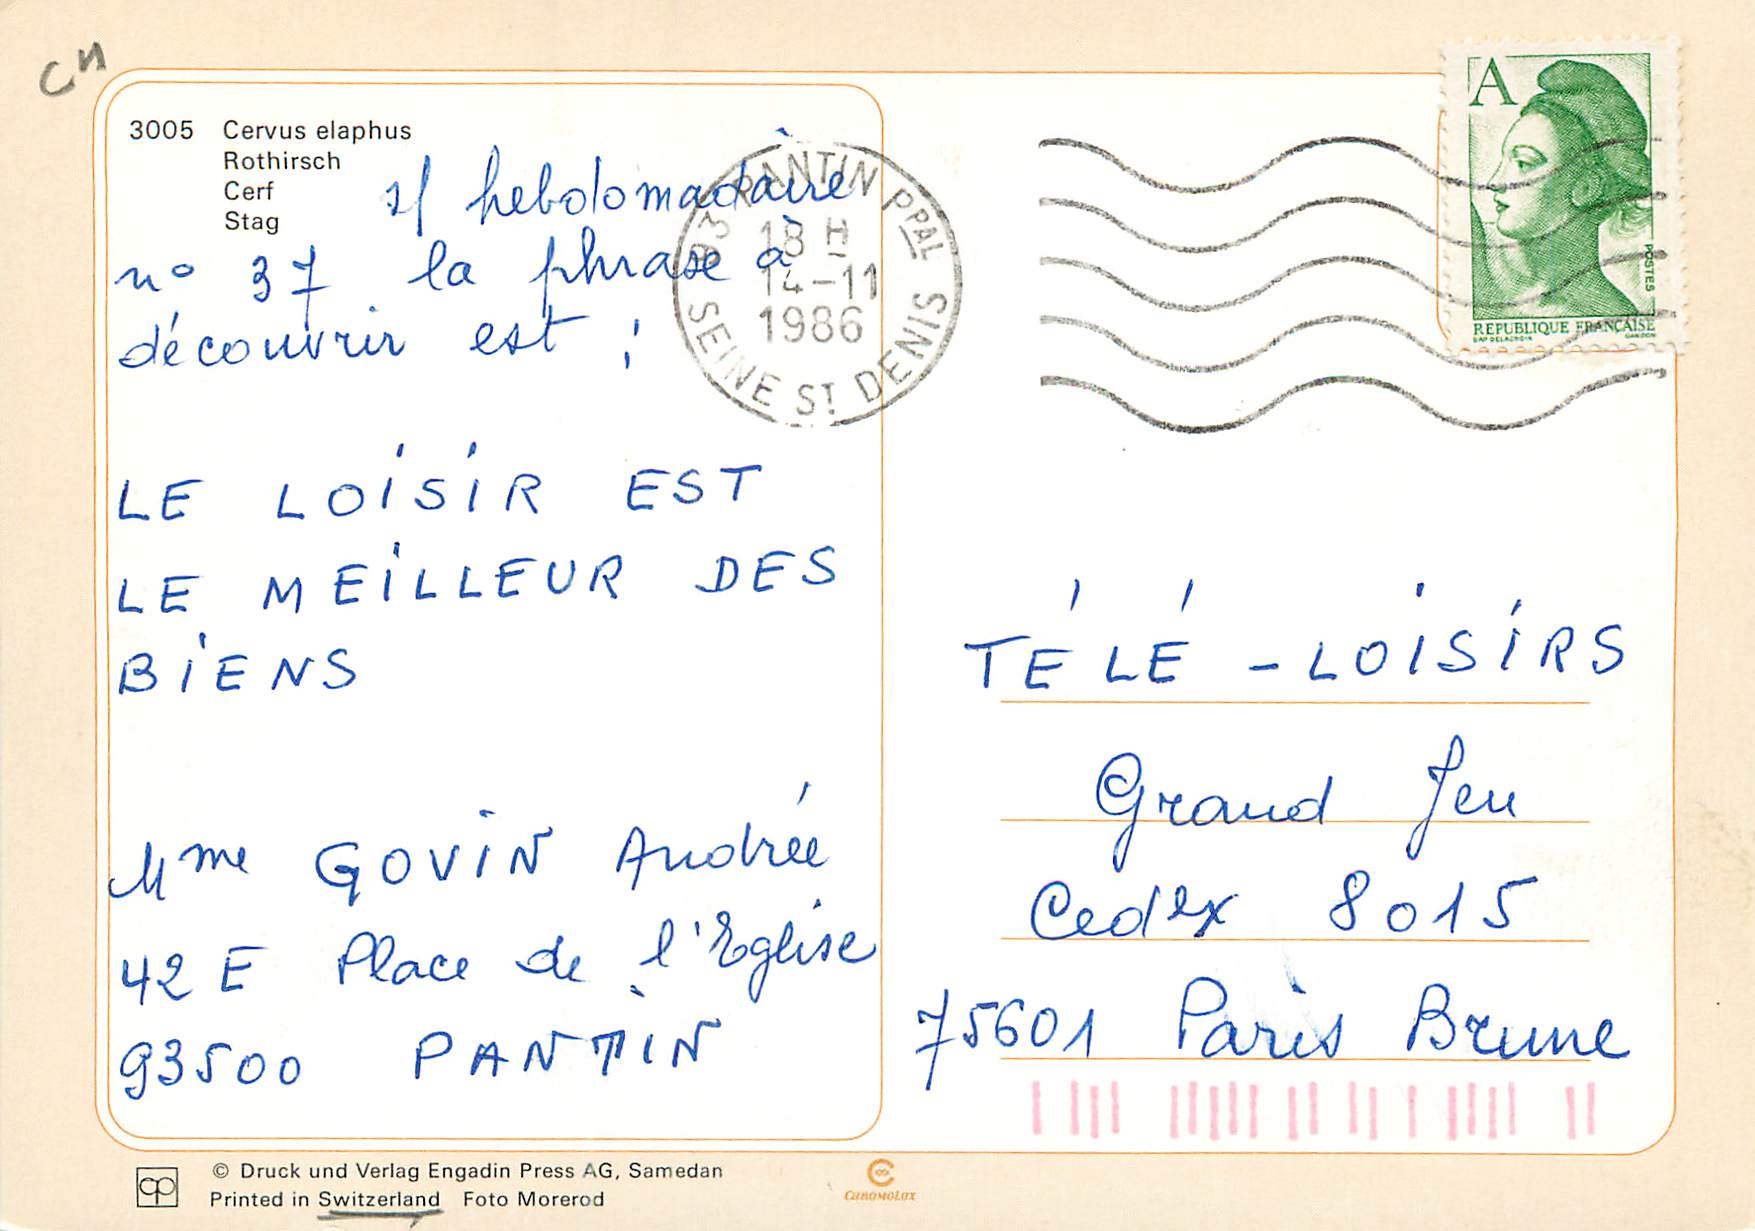 CH
3005 Cervus elaphus
Rothirsch
Cerf
Stag
s/ hebdomadaire
n° 37 la phrase à
découvrir est :
LE LOISIR EST
LE MEILLEUR DES
BIENS
Mme GOVIN Andrée
42 E Place de l'Eglise
93500 PANTIN
© Druck und Verlag Engadin Press AG, Samedan
Printed in Switzerland Foto Morerod
93 PANTIN PPAL
18 H
14-11
1986
SEINE ST DENIS
A
POSTES
REPUBLIQUE FRANÇAISE
D'AP DELACROIX GANDON
TÉLÉ-LOISIRS
Grand Jeu
Cedex 8015
75601 Paris Brune
CHROMOLUX